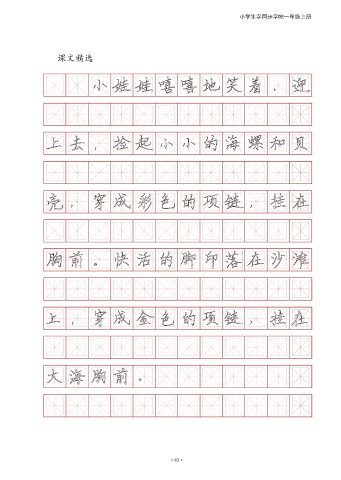 小学生字同步字帖一年级上册
课文精选
小娃娃嘻嘻地笑着，迎
上去，捡起小小的海螺和贝
壳，穿成彩色的项链，挂在
胸前。快活的脚印落在沙滩
上，穿成金色的项链，挂在
大海胸前。
· 43 ·